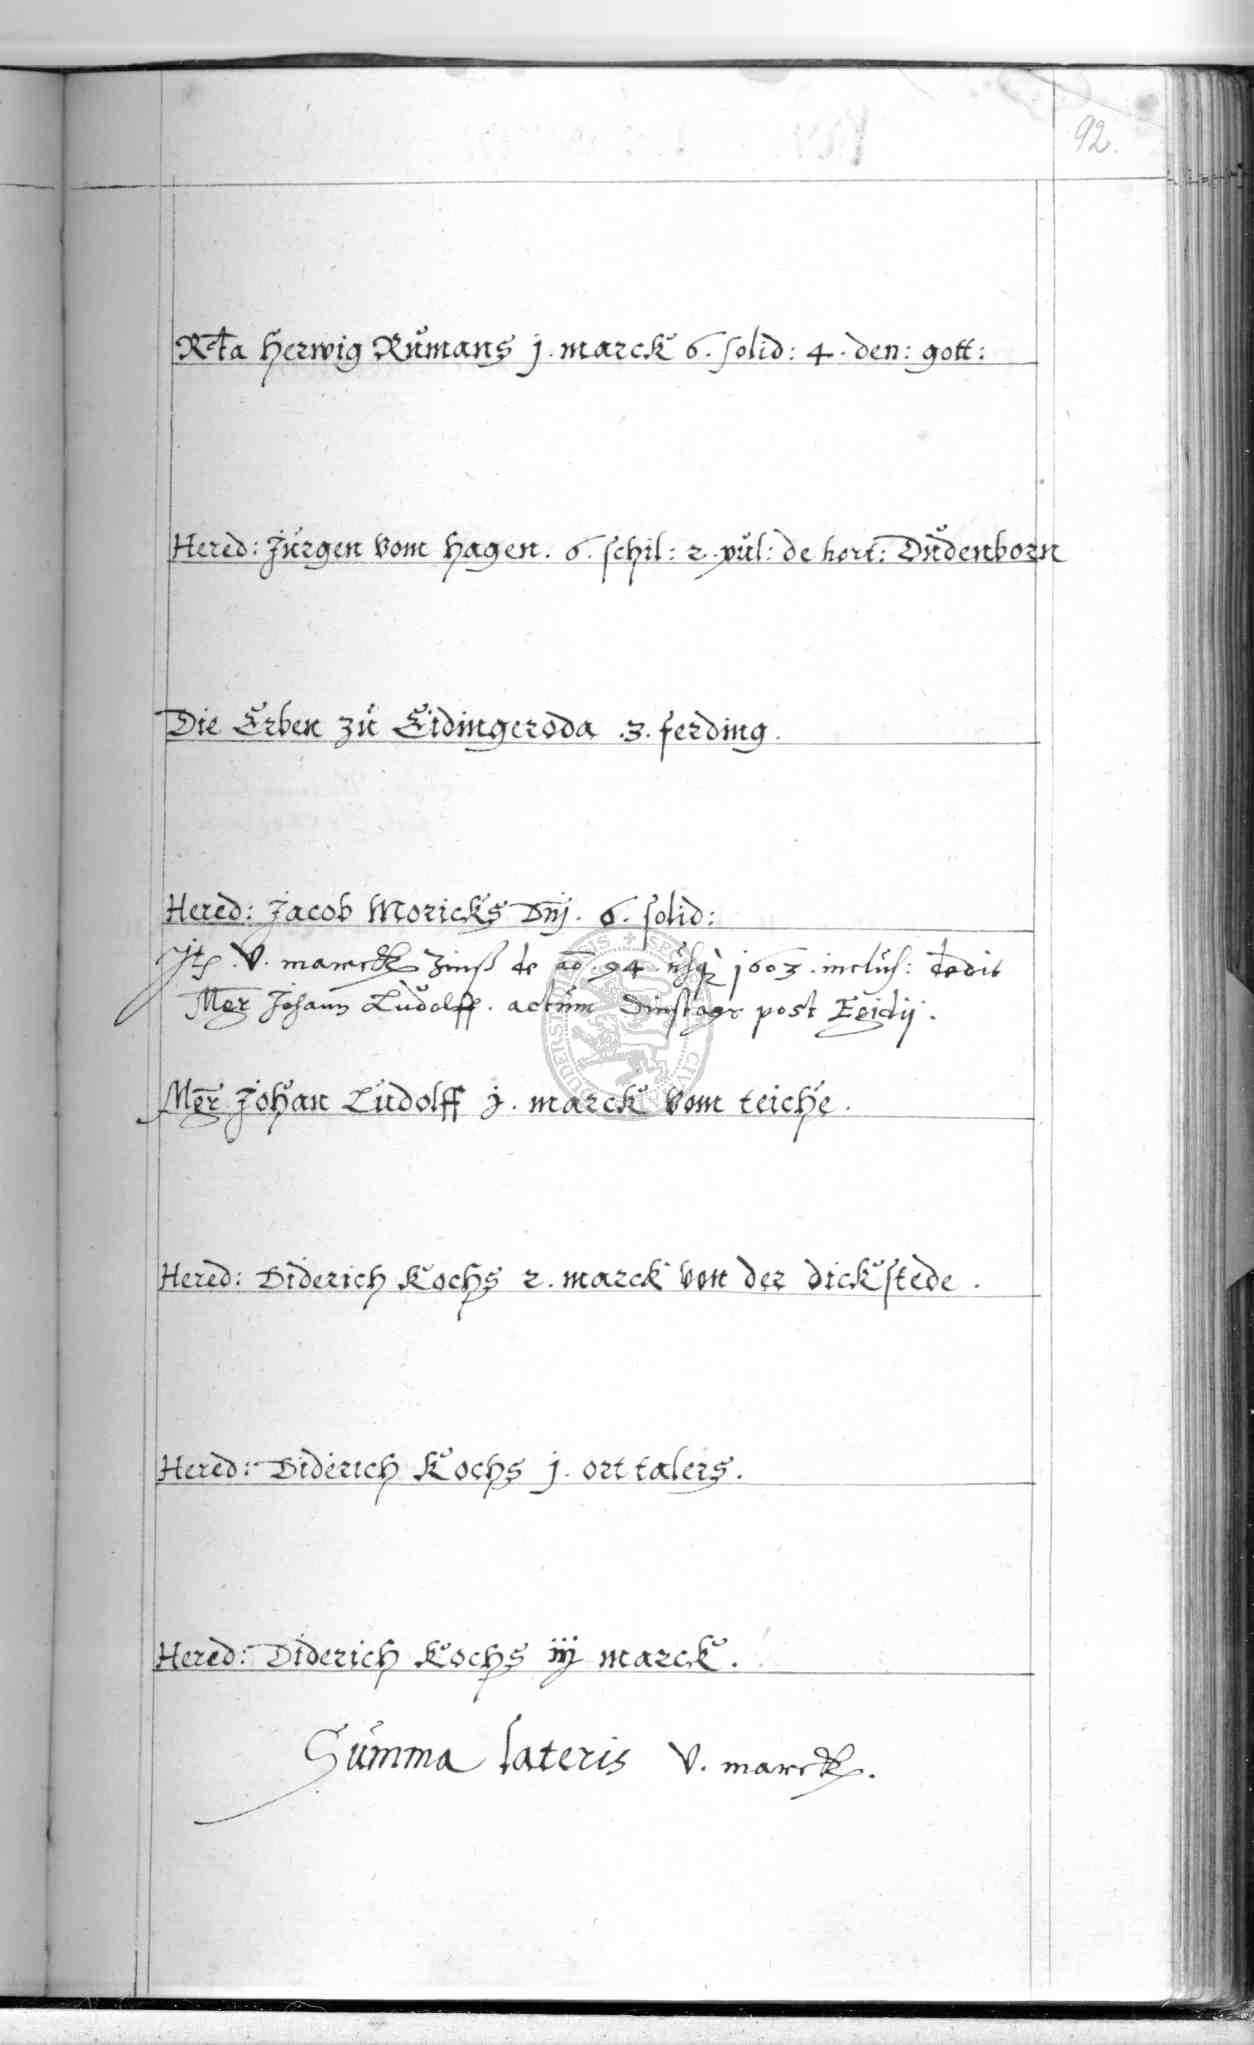 92.
Rcta Herwig Růmans j. marck 6. solid: 4. den: gott:
Hered: Jůrgen vom Hagen. 6. schil: 2. půl: de hort: Důdenborn
Die Erben zů Eidingeroda .3. ferding.
Hered: Jacob Moricks Dnj. 6. solid:
V. marck Zinß de ao. 94. ůsq 1603. inclus: dedit
Mgr Johann Lůdolff. actům Dinstags post Egidij.
Mgr Johan Lůdolff j. marck vom teiche.
Hered: Diderich Kochs 2. marck von der dickstede.
Hered: Diderich Kochs j. ort talers.
Hered: Diderich Kochs iij marck.
Sůmma lateris V. marck.